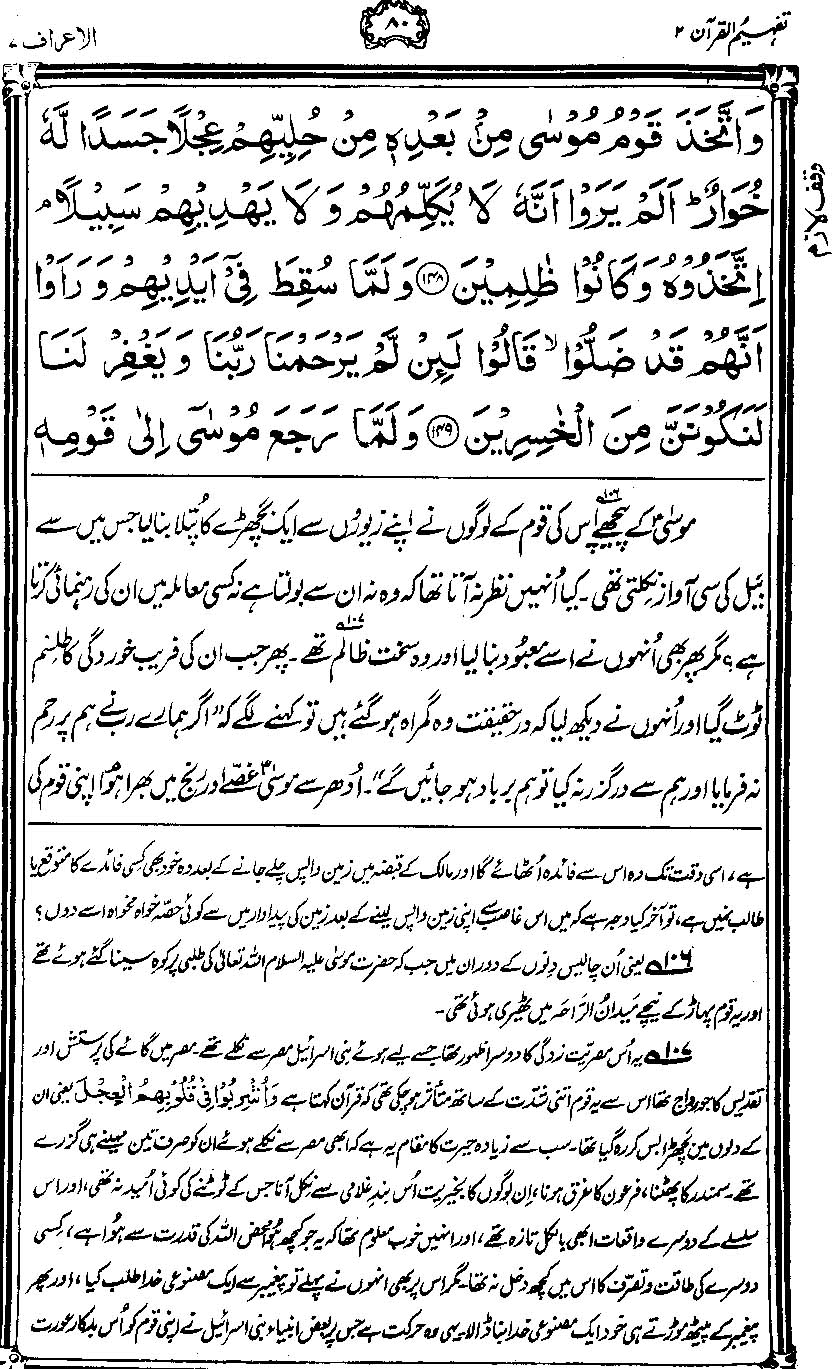 تفہیم القرآن ۲
۸۰
الاعراف ۷
وَاتَّخَذَ قَوْمُ مُوْسٰى مِنْۢ بَعْدِهٖ مِنْ حُلِيِّهِمْ عِجْلًا جَسَدًا لَّهٗ
خُوَارٌ ؕ اَلَمْ يَرَوْا اَنَّهٗ لَا يُكَلِّمُهُمْ وَ لَا يَهْدِيْهِمْ سَبِيْلًا ۘ
وقف لازم
اِتَّخَذُوْهُ وَ كَانُوْا ظٰلِمِيْنَ ﴿۱۴۸﴾ وَ لَمَّا سُقِطَ فِيْۤ اَيْدِيْهِمْ وَ رَاَوْا
اَنَّهُمْ قَدْ ضَلُّوْا ۙ قَالُوْا لَىِٕنْ لَّمْ يَرْحَمْنَا رَبُّنَا وَ يَغْفِرْ لَنَا
لَنَكُوْنَنَّ مِنَ الْخٰسِرِيْنَ ﴿۱۴۹﴾ وَ لَمَّا رَجَعَ مُوْسٰۤى اِلٰى قَوْمِهٖ
موسیٰؑ کے پیچھے ۱۰۶؎ اُس کی قوم کے لوگوں نے اپنے زیوروں سے ایک بچھڑے کا پُتلا بنا لیا جس میں سے
بیل کی سی آواز نکلتی تھی۔ کیا اُنہیں نظر نہ آتا تھا کہ وہ نہ ان سے بولتا ہے نہ کسی معاملہ میں ان کی رہنمائی کرتا
ہے؟ مگر پھر بھی اُنہوں نے اسے معبود بنا لیا اور وہ سخت ظالم تھے۱۰۷؎۔ پھر جب ان کی فریب خوردگی کا طلسم
ٹوٹ گیا اور اُنہوں نے دیکھ لیا کہ درحقیقت وہ گمراہ ہو گئے ہیں تو کہنے لگے کہ ”اگر ہمارے رب نے ہم پر رحم
نہ فرمایا اور ہم سے درگزر نہ کیا تو ہم برباد ہو جائیں گے“۔ اُدھر سے موسیٰؑ غصّے اور رنج میں بھرا ہوا اپنی قوم کی
ہے، اسی وقت تک وہ اس سے فائدہ اُٹھائے گا اور مالک کے قبضہ میں زمین واپس چلے جانے کے بعد وہ خود بھی کسی فائدے کا متوقع یا
طالب نہیں ہے، تو آخر کیا وجہ ہے کہ میں اس غاصب سے اپنی زمین واپس لینے کے بعد زمین کی پیداوار میں سے کوئی حصّہ خواہ مخواہ اسے دوں؟
۱۰۶؎ یعنی اُن چالیس دنوں کے دوران میں جب کہ حضرت موسیٰ علیہ السلام اللہ تعالیٰ کی طلبی پر کوہ سینا گئے ہوئے تھے
اور یہ قوم پہاڑ کے نیچے میدانُ الرَّاحہ میں ٹھیری ہوئی تھی۔
۱۰۷؎ یہ اُس مصریت زدگی کا دوسرا ظہور تھا جسے لیے ہوئے بنی اسرائیل مصر سے نکلے تھے۔ مصر میں گائے کی پرستش اور
تقدیس کا جو رواج تھا اس سے یہ قوم اتنی شدّت کے ساتھ متأثر ہو چکی تھی کہ قرآن کہتا ہے وَاُشْرِبُوْا فِیْ قُلُوْبِهِمُ الْعِجْلَ یعنی ان
کے دلوں میں بچھڑا بس کر رہ گیا تھا۔ سب سے زیادہ حیرت کا مقام یہ ہے کہ ابھی مصر سے نکلے ہوئے ان کو صرف تین مہینے ہی گزرے
تھے۔ سمندر کا پھٹنا، فرعون کا غرق ہونا، اِن لوگوں کا بخیریت اُس بندِ غلامی سے نکل آنا جس کے ٹوٹنے کی کوئی اُمید نہ تھی، اور اس
سلسلے کے دوسرے واقعات ابھی بالکل تازہ تھے، اور انہیں خوب معلوم تھا کہ یہ جو کچھ ہُوا محض اللہ کی قدرت سے ہُوا ہے، کسی
دوسرے کی طاقت و تصرّف کا اس میں کچھ دخل نہ تھا۔ مگر اس پر بھی انہوں نے پہلے تو پیغمبر سے ایک مصنوعی خدا طلب کیا، اور پھر
پیغمبر کے پیٹھ موڑتے ہی خود ایک مصنوعی خدا بنا ڈالا۔ یہی وہ حرکت ہے جس پر بعض انبیاء بنی اسرائیل نے اپنی قوم کو اُس بدکار عورت